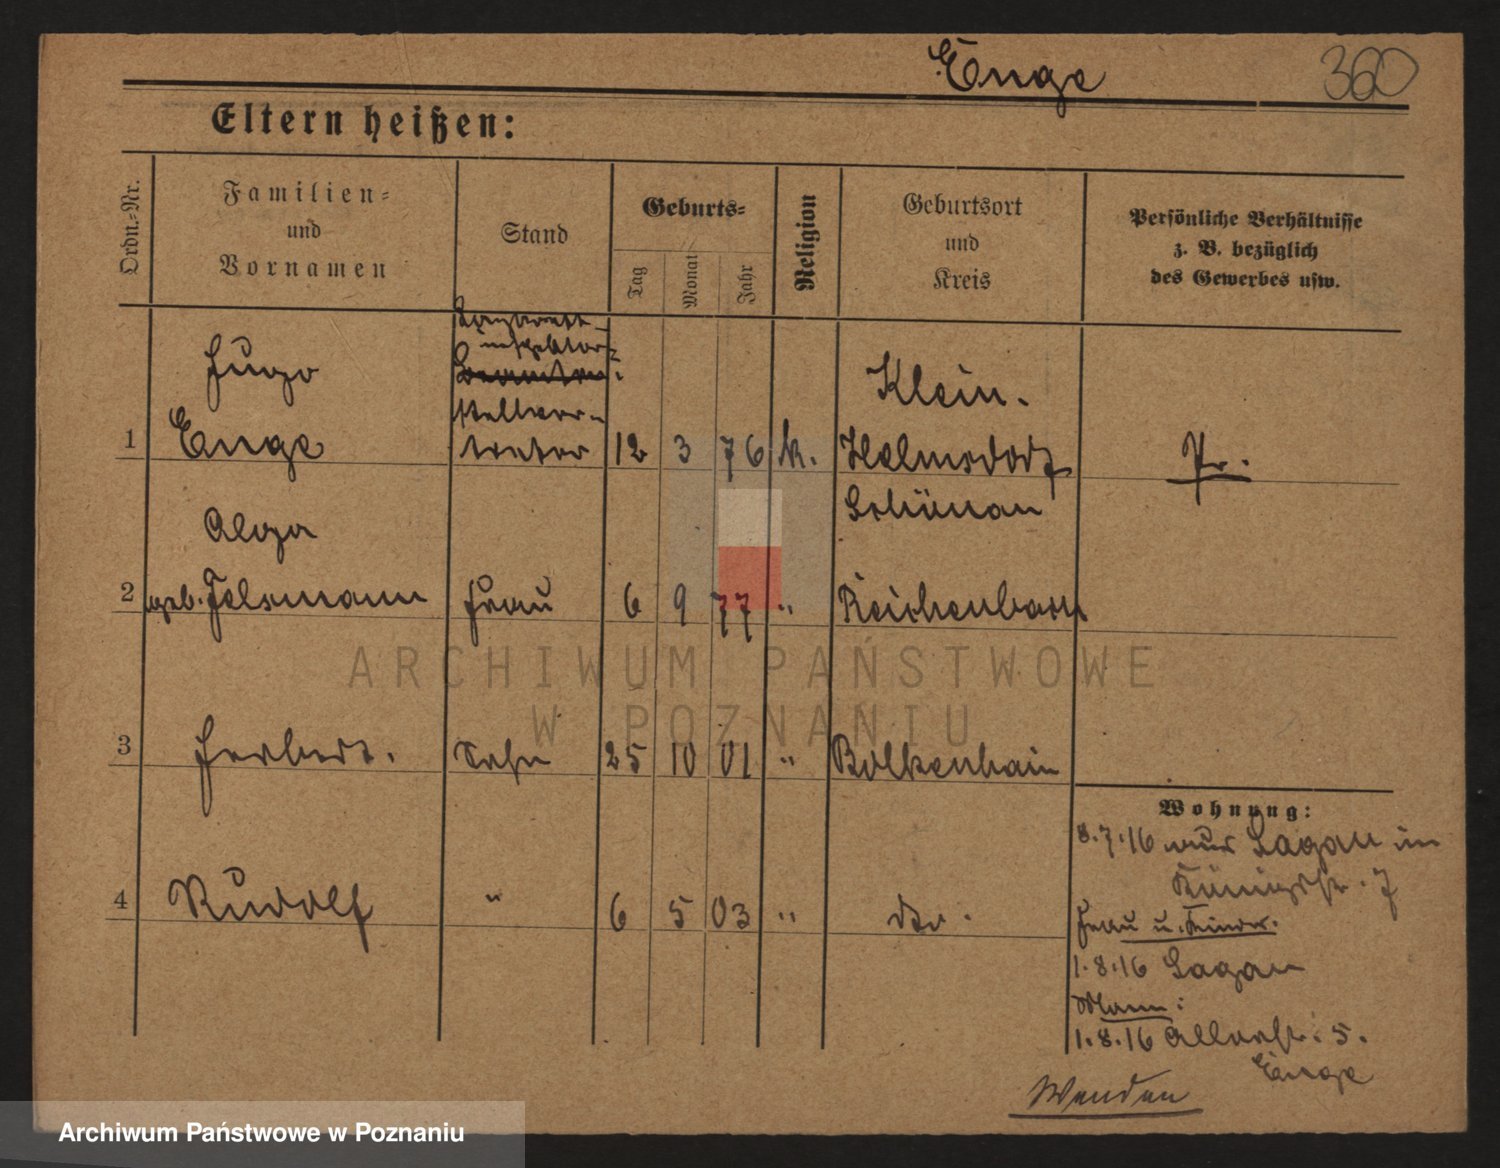 Enge
360
Eltern heißen:
Ordn.-Nr.
Familien-
und
Vornamen
Stand
Geburts-
Tag
Monat
Jahr
Religion
Geburtsort
und
Kreis
Persönliche Verhältnisse
z. B. bezüglich
des Gewerbes usw.
1
Hugo
Enge
inspektor-
stellver-
treter
12 3 76 k.
Klein-
Helmsdorf
Schönau
Pr.
2
geb. Felsmann
Frau
6 9 77 "
Reichenbach
ARCHIWUM PAŃSTWOWE
W POZNANIU
3
Herbert.
Sohn
25 10 01 "
Bolkenhain
4
Rudolf
"
6 5 03 "
dto.
Wohnung:
8.7.16 aus Sagan in
Königstr. 7
Frau u. Kinder.
1.8.16 Sagan
Mann:
1.8.16 Allerstr. 5.
Enge
Wenden
Archiwum Państwowe w Poznaniu